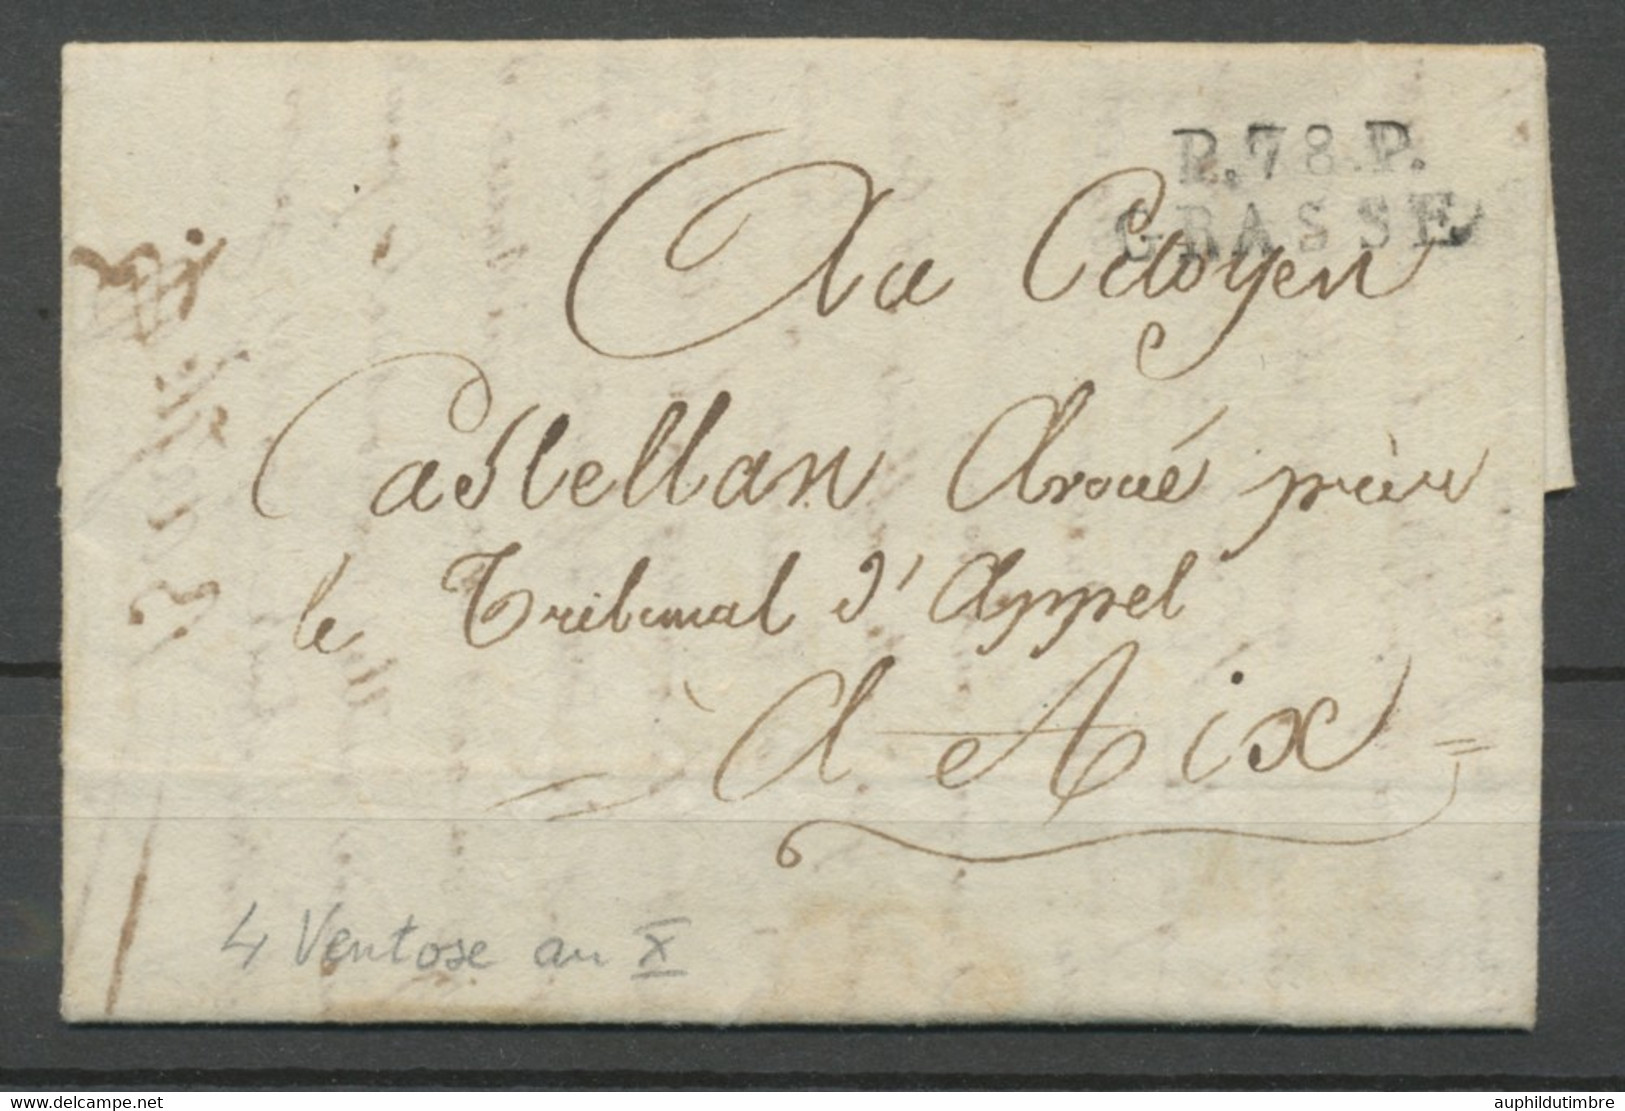 P.78.P.
GRASSE
Au Citoyen
Castellan Avoué près
le Tribunal d'Appel
à d'Aix
4 Ventose an X
delcampe.net
auphildutimbre